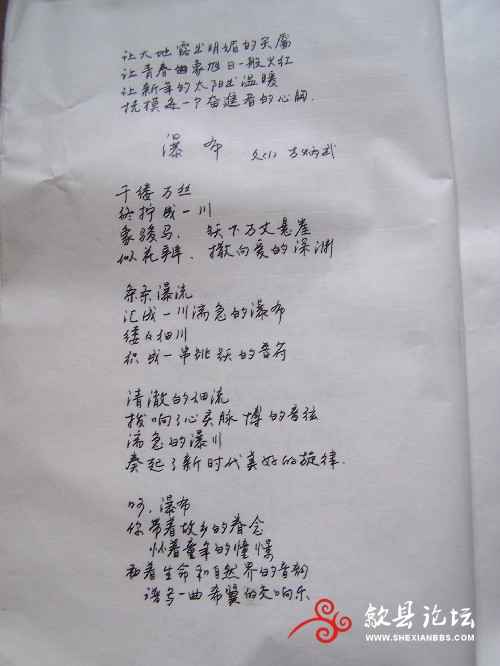 让大地露出明媚的笑靥
让青春曲象旭日一般火红
让新年的太阳光温暖
抚摸每一个奋进者的心胸.
瀑布
千缕万丝
终拧成一川
象骏马, 跃下万丈悬崖
似花瓣, 撒向爱的深渊
条条瀑流
汇成一川湍急的瀑布
缕缕细川
织成一串跳跃的音符
清澈的细流
拨响了心灵脉博的音弦
湍急的瀑川
奏起了新时代美好的旋律.
呵, 瀑布
你带着故乡的眷念
怀着童年的憧憬
和着生命和自然界的音韵
谱写一曲希冀的交响乐
歙县论坛
WWW.SHEXIANBBS.COM